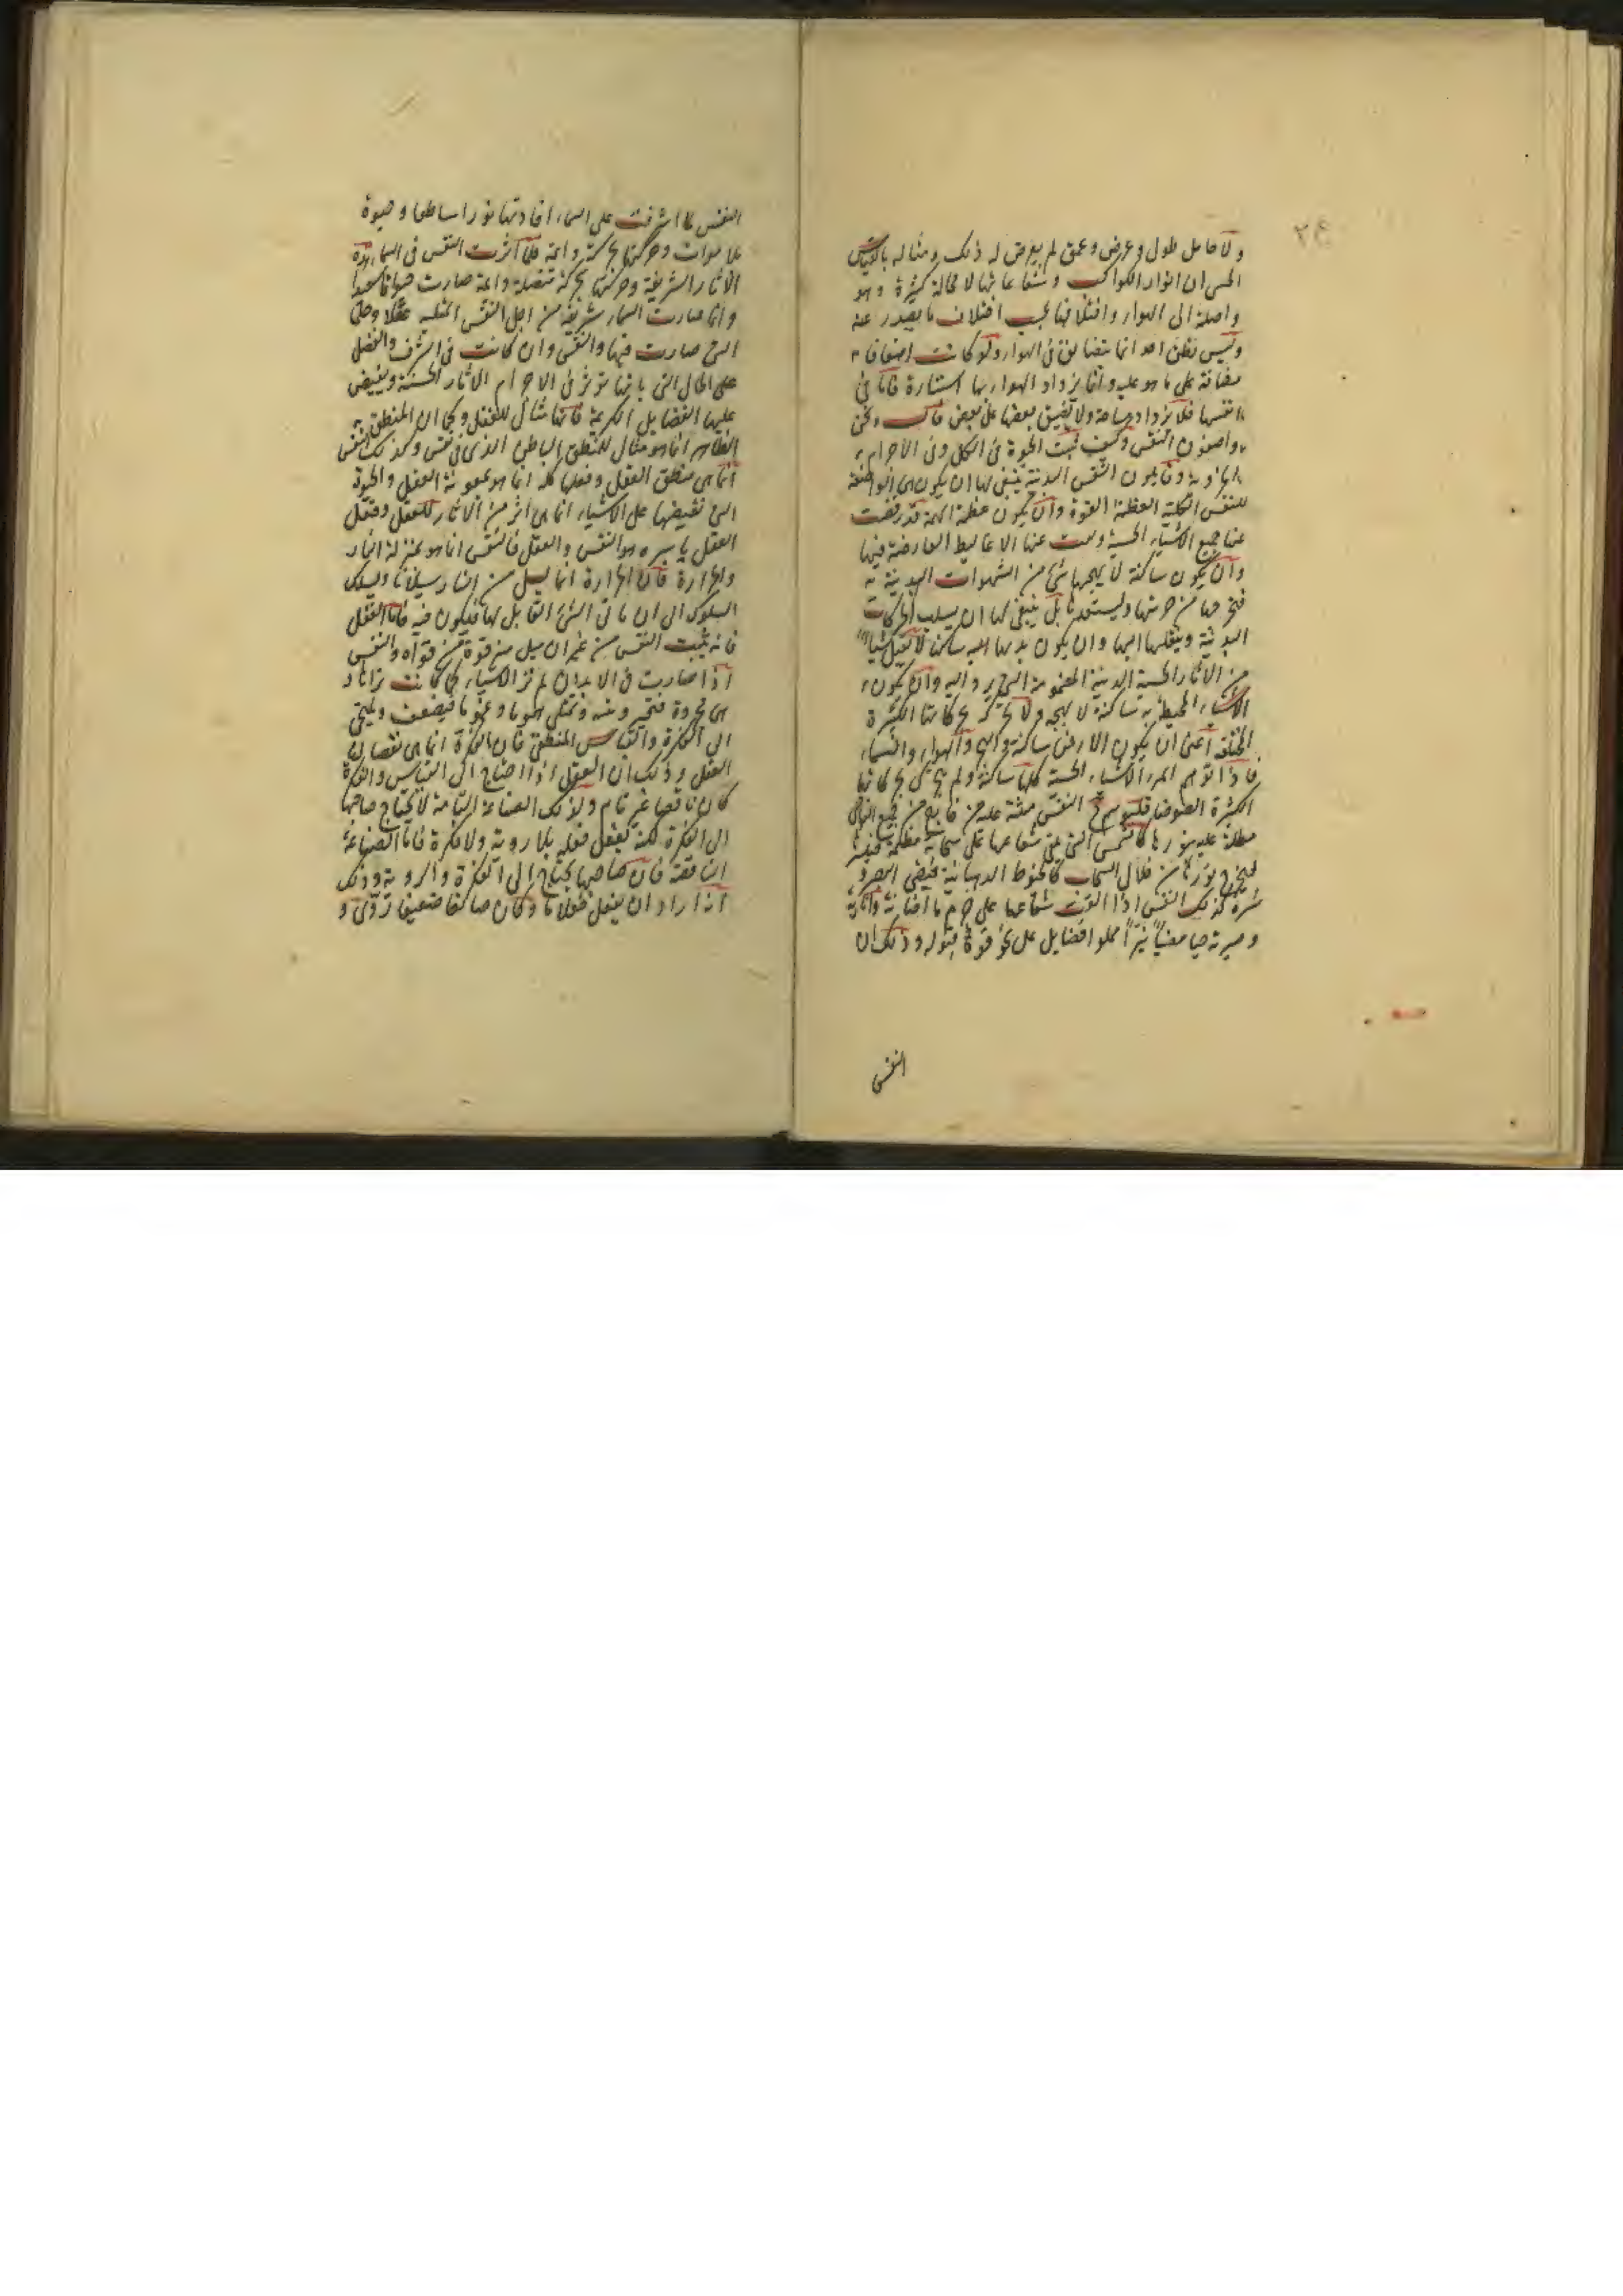 ٢۴
ولا حامل طول وعرض وعمق لم يعرض له ذلك ومثاله بالقياس
الحس ان انوار الكواكب وشعاعاتها لا محالة كثيرة وهو
واصلة الى الهواء واختلافها بحسب اختلاف ما يصدر عنه
وليس يظن احد انما يتضايق فى الهواء ولو كانت اضعافا
مضافة على ما هو عليه وانما يزداد الهواء بها استنارة فاما فى
انفسها فلا يزداد مساحة ولا يضيق بعضها على بعض قال ونحن
واصفون النفس وكيف تبث الحيوة فى الكل وفى الاجرام
الجزوية وقايلون النفس الدنية ينبغى لها ان يكون هى المواضعة
للنفس الكلية العظيمة القوة وان يكون عظيمة الهمة قد رفضت
عنها جميع الاشياء الحسية ومست عنها الاغاليط العارضة فيها
وان يكون ساكنة لا يهيجها شىء من الشهوات البدنية
فتخرجها من حرشها وليستعدها بل ينبغى لها ان يسلب الحركات
البدنية وينقلها اليها وان يكون بدنها اليه ساكنا لا يقبل شيأ
من الاثار الحسية الدنية المذمومة التى يرد اليه وان يكون
الاشياء المحيطة به ساكنة لا يهيجه ولا يحركه بحركاتها الكثيرة
المختلفة اعنى ان يكون الارض ساكنة والبحر والهواء والسماء
فاذا توهم المرء الاشياء الحسية كلها ساكنة ولم يحس بحركاتها
الكثيرة الضوضاء فليتوهم النفس منبثة عليه من خارج من جميع النواحى
مطلة عليه بنورها كالشمس التى يلقى شعاعها على سحابة مظلمة فينير
فيخرج نورها من خلال السحاب كالخيوط الذهبانية فيضى البصر و
يسره كذلك النفس اذا القت شعاعها على جرم ما اضاته وانارته
وصيرته حيا مضيأ نيرا مملوا فضايل على نحو قوة قبوله وذلك ان
النفس
النفس لما اشرقت على السماء افادتها نورا ساطعا وحيوة
بلا موات وحركتها بحركة دائمة فلما اثرت النفس فى السماء هذه
الاثار الشريفة وحركتها بحركة متصلة دائمة صارت حيوانا سعيدا
وانما صارت السماء شريفة من اجل النفس المفكرة عقلا وحلى
التى صارت فيها والنفس وان كانت فى الشرف والفضل
على الحال التى بانها تؤثر فى الاجرام الاثار الحسنة ويفيض
عليها الفضايل الكريمة فانها مثال للعقل وكما ان المنطق
الظاهر انما هو مثال للمنطق الباطن الذى فى نفس وكذلك النفس
انما هى منطق العقل وفعلها كله انما هو بمعونة العقل والحيوة
التى تفيضها على الاشياء انما هى اثر من الاثار للعقل وفعل
العقل باسره هو النفس والعقل فالنفس انما هو بمنزلة النار
والحرارة فان الحرارة انما يسيل من النار سيلانا ويسلك
السلوك الى ان ياتى الشىء القابل لها فيكون فيه فاما العقل
فانه يثبت النفس من غير ان يسيل منه قوة من قواه والنفس
اذا صارت فى الابدان لم تر الاشياء كما كانت تراها و
هى مجردة فتحير وينسى وتمتلى هموما وغموما فيضعف ويلتجى
الى الفكرة والقياس المنطقى فان الفكرة انما هى نقصان
العقل وذلك ان العقل اذا احتاج الى القياس والفكرة
كان ناقصا غير تام وكذلك الصناعة التامة لا يحتاج صاحبها
الى الفكرة لكنه يفعل فعله بلا روية ولا فكرة فاما الصناعة
الناقصة فان صاحبها يحتاج الى الفكرة والروية وذلك
اذا اراد ان يفعل فعلا ما وكان صانعا ضعيفا تروى و